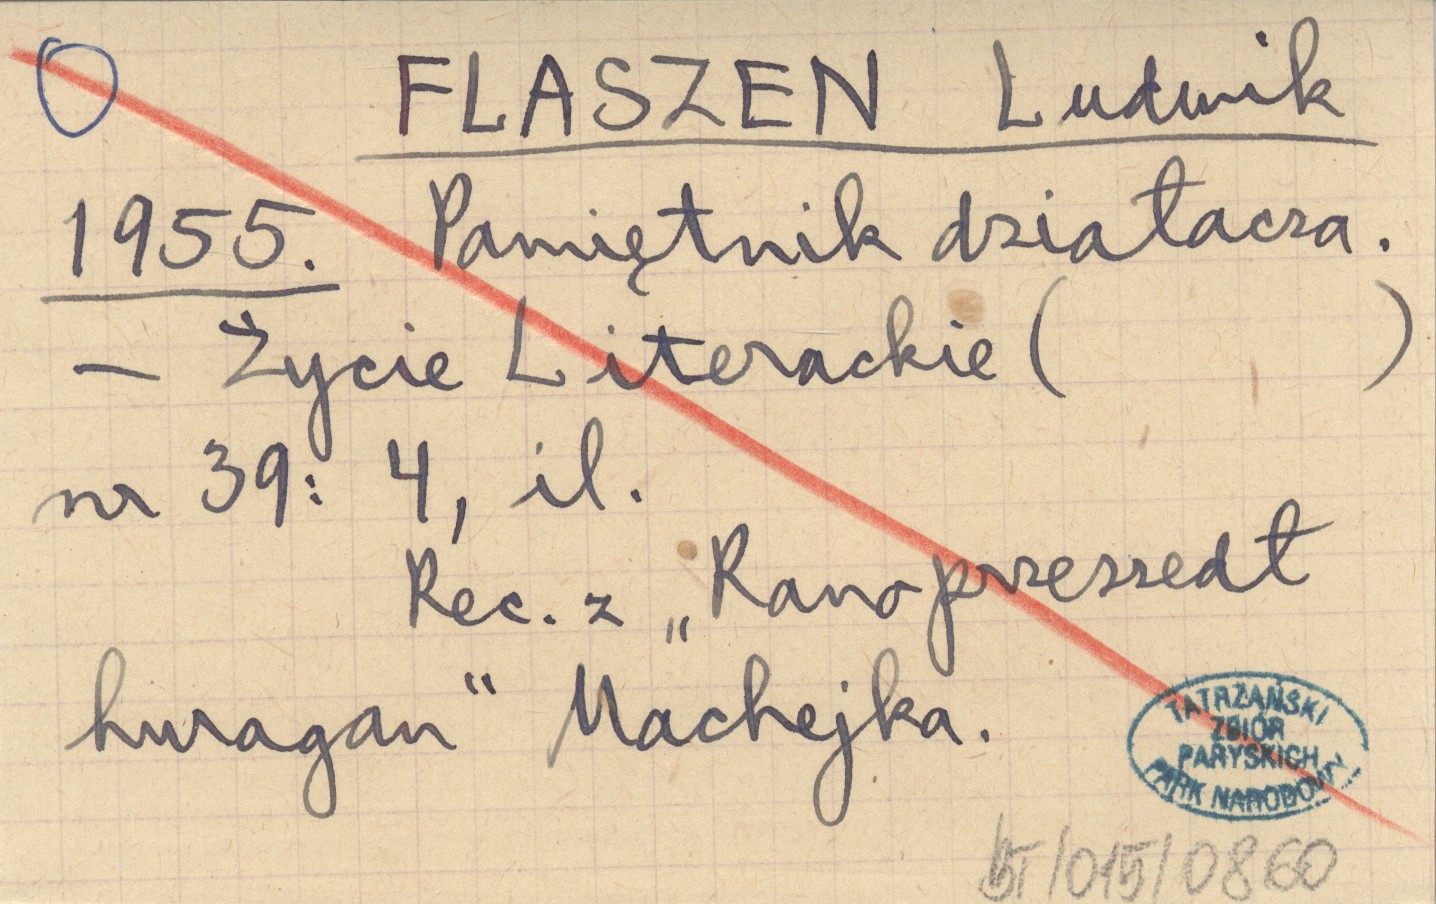 FLASZEN Ludwik
1955. Pamiętnik działacza.
— Życie Literackie ( )
nr 39: 4, il.
Rec. z „Rano przeszedł
huragan“ Machejka.
TATRZAŃSKI
ZBIÓR
PARYSKICH
PARK NARODOWY
/015/0860